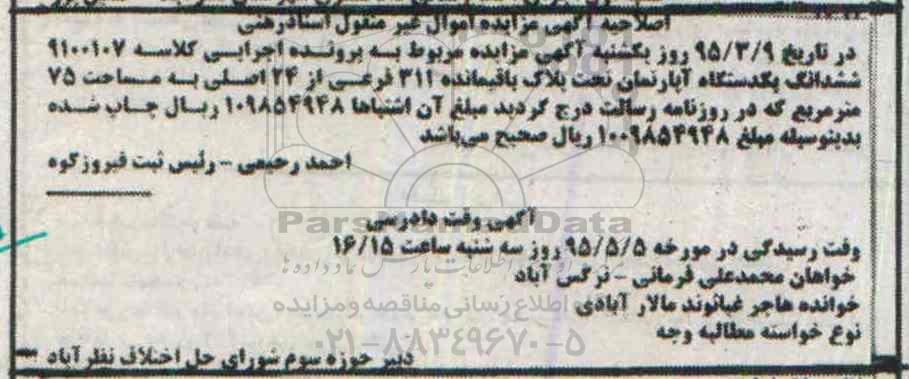 اصلاحیه آگهی مزایده اموال غیر منقول اسنادرهنی
در تاریخ ۹۵/۳/۹ روز یکشنبه آگهی مزایده مربوط به پرونده اجرایی کلاسه ۹۱۰۰۱۰۷
ششدانگ یکدستگاه آپارتمان تحت پلاک باقیمانده ۳۱۱ فرعی از ۲۴ اصلی به مساحت ۷۵
مترمربع که در روزنامه رسالت درج گردید مبلغ آن اشتباها ۱۰۹۸۵۴۹۴۸ ریال چاپ شده
بدینوسیله مبلغ ۱۰۰۹۸۵۴۹۴۸ ریال صحیح می‌باشد
احمد رحیمی – رئیس ثبت فیروزکوه
آگهی وقت دادرسی
ParsNamadData
وقت رسیدگی در مورخه ۹۵/۵/۵ روز سه شنبه ساعت ۱۶/۱۵
خواهان محمدعلی فرمانی – نرگس آباد
خوانده هاجر غیاثوند مالار آبادی
اطلاع رسانی مناقصه و مزایده
نوع خواسته مطالبه وجه
۰۲۱-۸۸۳۴۹۶۷۰-۵
دبیر حوزه سوم شورای حل اختلاف نظر آباد